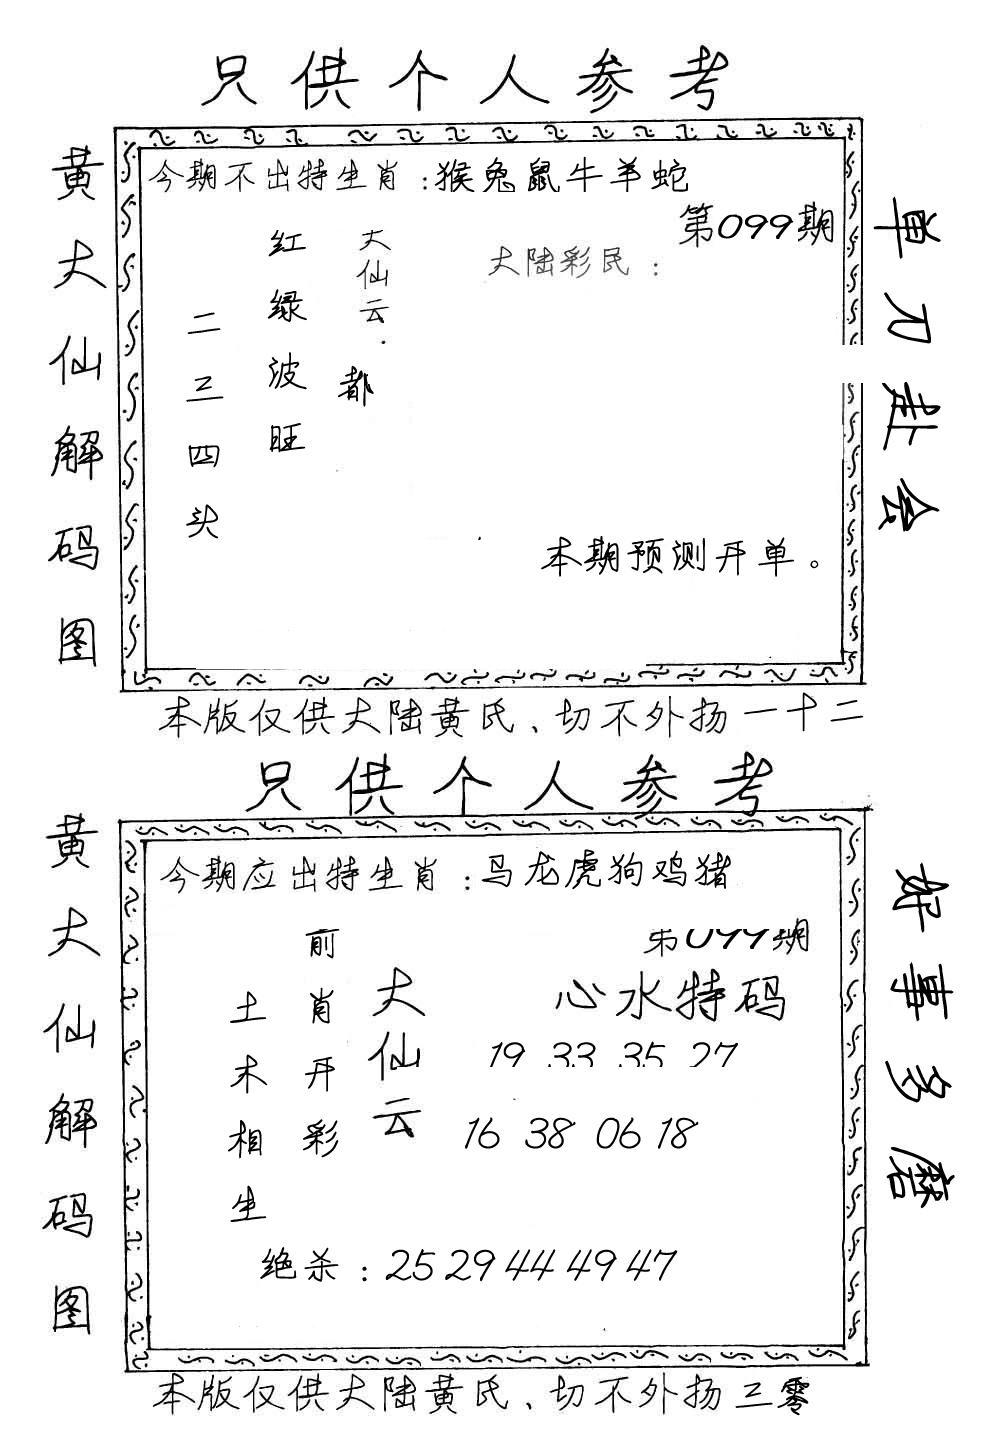 只供个人参考
黄大仙解码图
今期不出特生肖:猴兔鼠牛羊蛇
第099期
大陆彩民:
大仙云.
都
红绿波旺
二三四头
本期预测开单。
单刀赴会
本版仅供大陆黄氏、切不外扬一十二
只供个人参考
黄大仙解码图
今期应出特生肖:马龙虎狗鸡猪
第099期
心水特码
19 33 35 27
16 38 06 18
大仙云
前肖开彩
土木相生
绝杀:25 29 44 49 47
好事多磨
本版仅供大陆黄氏、切不外扬三零